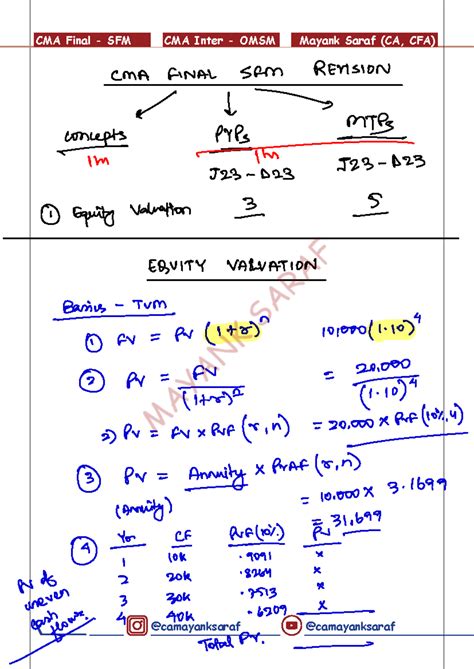 CMA Final - SFM CMA Inter - OMSM Mayank Saraf (CA, CFA)
CMA FINAL SFM REVISION
Concepts PYPs MTPs
1m 1m
J23-D23 J23-D23
① Equity Valuation 3 5
EQUITY VALUATION
Basics - TVM
① FV = PV (1+r)^n 10,000 (1.10)^4
② PV = FV / (1+r)^n = 20,000 / (1.10)^4
2) PV = FV x PVF (r, n) = 20,000 x PVF (10%, 4)
③ PV = Annuity x PVAF (r, n)
(Annuity) = 10,000 x 3.1699
= 31,699
④ Year CF PVF (10%) PV
1 10K .9091 x
2 20K .8264 x
3 30K .7513 x
4 40K .6209 x
PV of uneven cash flows.
Total PV.
@camayanksaraf @camayanksaraf
MAYANK SARAF